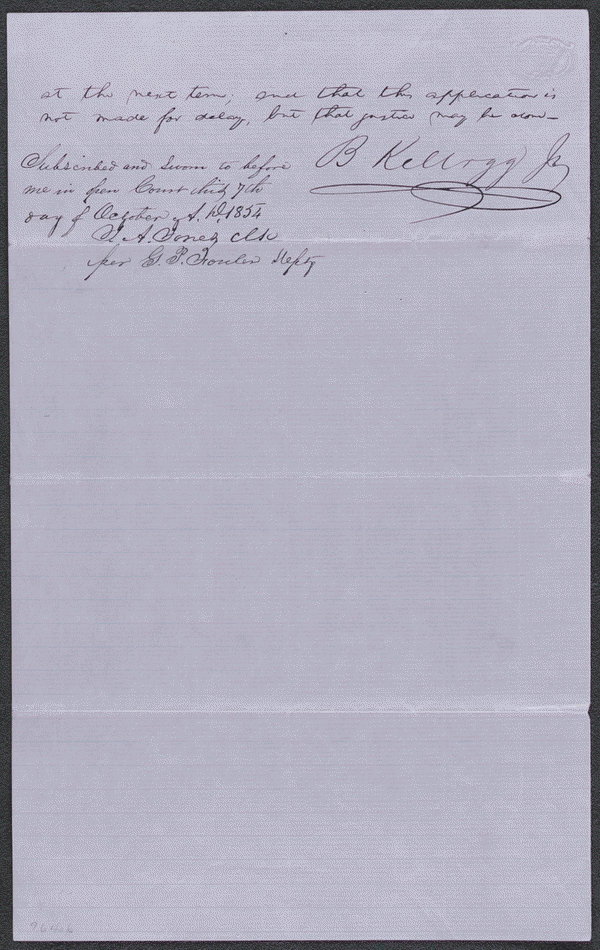 at the next term; and that this application is
not made for delay, but that justice may be done—
B Kellogg Jr
Subscribed and Sworn to before
me in open Court this 7th
day of October A.D. 1854
A. Jones Clk
per G. P. Fowler Depty